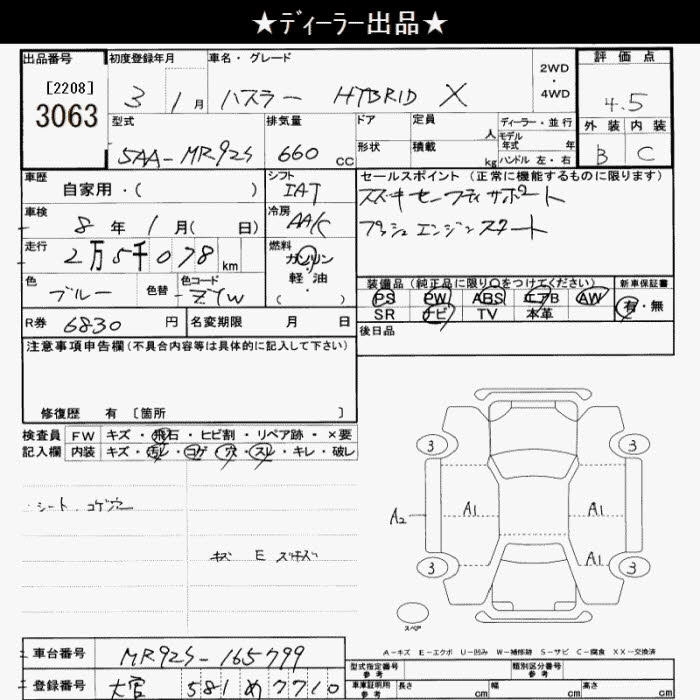 ★ディーラー出品★
出品番号 初度登録年月 車名・グレード 2WD・4WD 評価点
[2208] 3063 3 1月 ハスラー HYBRID X 4.5
型式 排気量 ドア 定員 人 ディーラー・並行 外装 内装
5AA-MR92S 660 CC 形状 積載 kg モデル年式 年 ハンドル 左・右 B C
車歴 シフト セールスポイント(正常に機能するものに限ります)
自家用・( ) IAT スズキセーフティサポート
車検 8年 1月( 日) 冷房 AAC プッシュエンジンスタート
走行 2万5千078km 燃料 ガソリン 軽・油 ( )
色 ブルー 色替 色コード ZYW
装備品(純正品に限り○をつけてください) 新車保証書
PS PW ABS エアB AW 有・無
SR ナビ TV 本革
R券 6830円 名変期限 月 日 後日品
注意事項申告欄(不具合内容等は具体的に記入して下さい)
修復歴 有 〔箇所 〕
検査員 FW キズ・飛石・ヒビ割・リペア跡・×要
記入欄 内装 キズ・汚レ・コゲ・穴・スレ・キレ・破レ
シート コゲ穴
キズ E
3 3
A2 A1 A1
A1
3 3
スペア
A-キズ E-エクボ U-凹み W-補修跡 S-サビ C-腐食 XX-交換済
車台番号 MR92S-165799
型式指定番号 参考 類別区分番号 参考
登録番号 大宮 581 め 7710
車庫証明用 参考 長さ cm 幅 cm 高さ cm